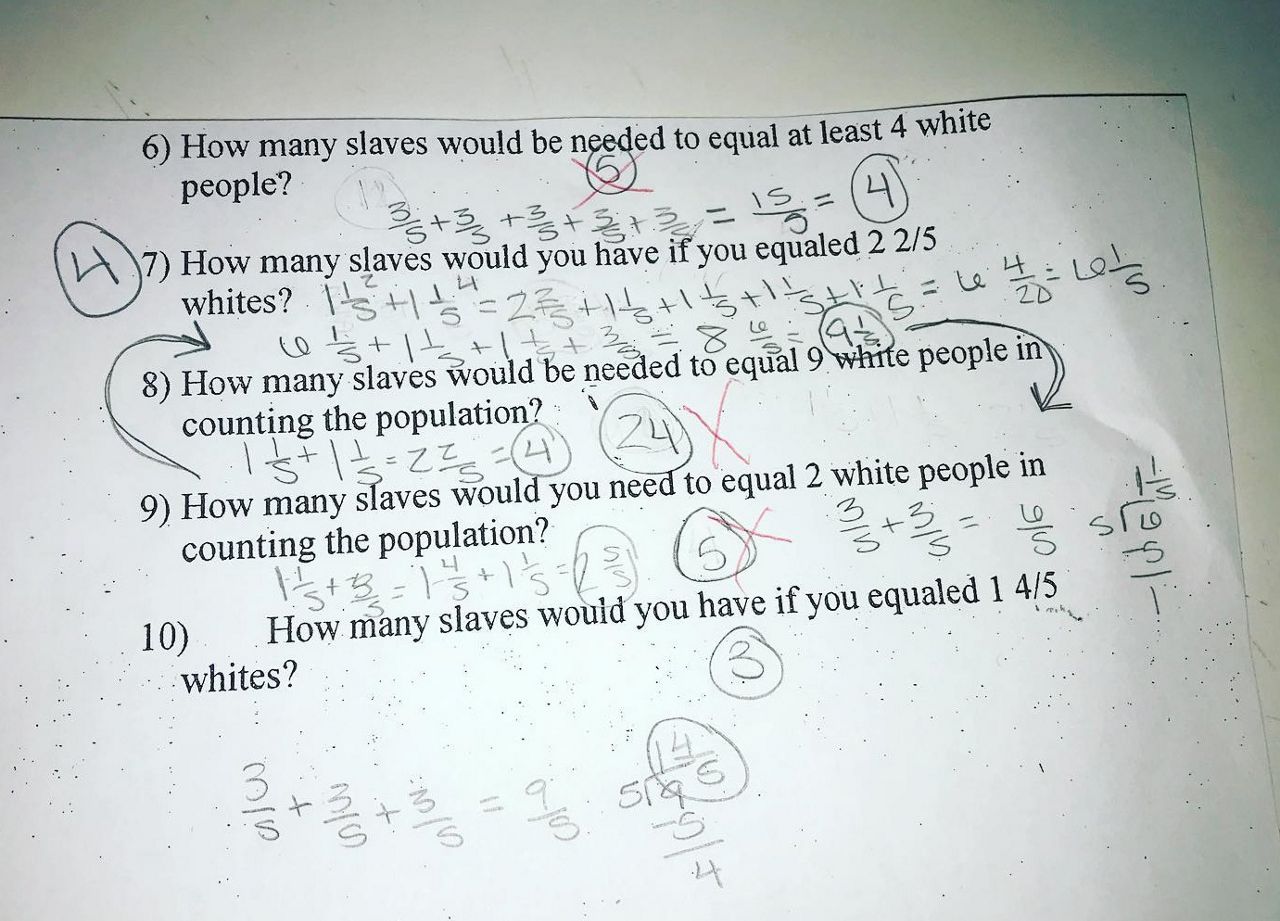 6) How many slaves would be needed to equal at least 4 white
people?
5
3/5 + 3/5 + 3/5 + 3/5 + 3/5 = 15/5 = 4
4
7) How many slaves would you have if you equaled 2 2/5
whites? 1 1/5 + 1 1/5 = 2 2/5 + 1 1/5 + 1 1/5 + 1 1/5 + 1 1/5 = 6 4/20 = 6 1/5
6 1/5 + 1 1/5 + 1 1/5 + 3/5 = 8 6/5 = 9 1/5
8) How many slaves would be needed to equal 9 white people in
counting the population? 24
1 1/5 + 1 1/5 = 2 2/5 = 4
9) How many slaves would you need to equal 2 white people in
counting the population? 5
3/5 + 3/5 = 6/5
1 1/5
5 6
-5
1
1 1/5 + 3/5 = 1 4/5 + 1 1/5 = 2 5/5
10) How many slaves would you have if you equaled 1 4/5
whites? 3
3/5 + 3/5 + 3/5 = 9/5
1 4/5
5 9
-5
4